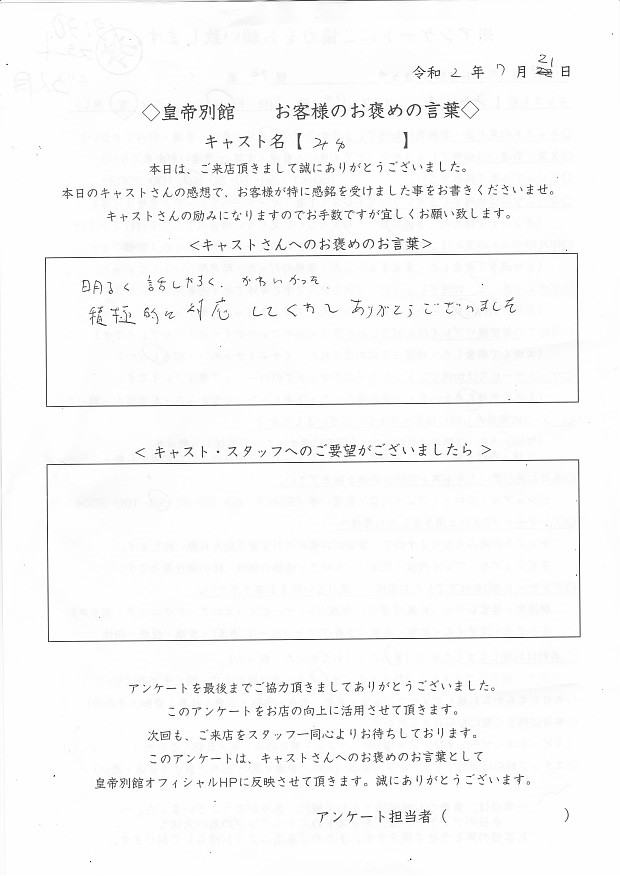 令和 2 年 7 月 21 日
◇皇帝別館　　お客様のお褒めの言葉◇
キャスト名【　　　　　】
本日は、ご来店頂きまして誠にありがとうございました。
本日のキャストさんの感想で、お客様が特に感銘を受けました事をお書きくださいませ。
キャストさんの励みになりますのでお手数ですが宜しくお願い致します。
＜キャストさんへのお褒めのお言葉＞
明るく 話しやすく、かわいかった
積極的に 対応 してくれて ありがとうございました
＜ キャスト・スタッフへのご要望がございましたら ＞
アンケートを最後までご協力頂きましてありがとうございました。
このアンケートをお店の向上に活用させて頂きます。
次回も、ご来店をスタッフ一同心よりお待ちしております。
このアンケートは、キャストさんへのお褒めのお言葉として
皇帝別館オフィシャルHPに反映させて頂きます。誠にありがとうございます。
アンケート担当者（　　　　　　　）